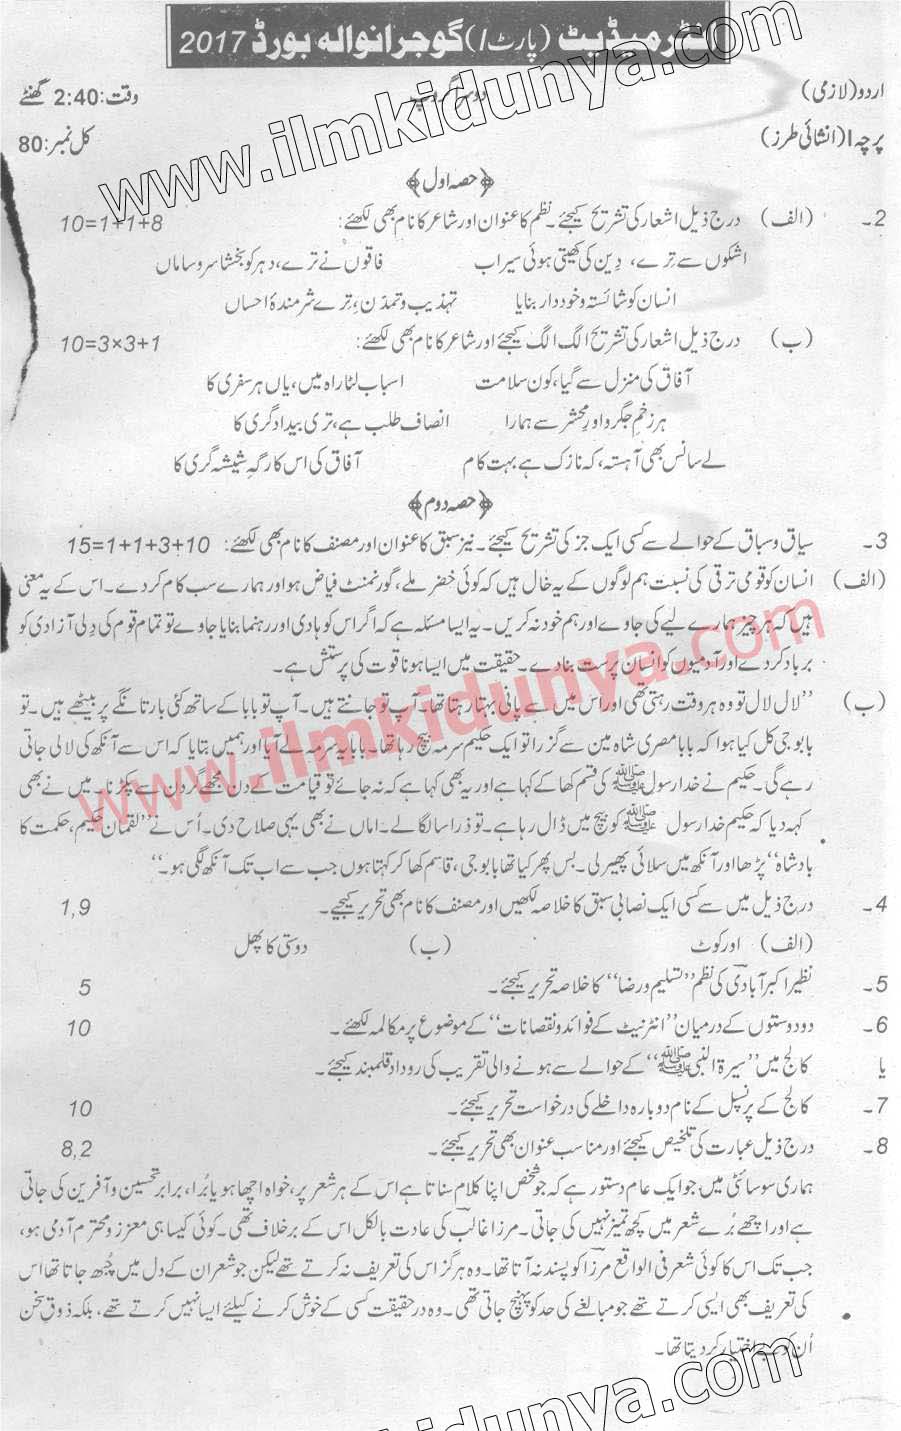 انٹرمیڈیٹ (پارٹ I) گوجرانوالہ بورڈ 2017
اردو (لازمی) دوسرا گروپ وقت: 2:40 گھنٹے
پرچہ I (انشائی طرز) کل نمبر: 80
﴿حصہ اول﴾
2۔ (الف) درج ذیل اشعار کی تشریح کیجئے۔ نظم کا عنوان اور شاعر کا نام بھی لکھئے: 10=1+1+8
اشکوں سے ترے، دِین کی کھیتی ہوئی سیراب فاقوں نے ترے، دہر کو بخشا سروساماں
انسان کو شائستہ و خوددار بنایا تہذیب و تمدن، ترے شرمندۂ احساں
(ب) درج ذیل اشعار کی تشریح الگ الگ کیجئے اور شاعر کا نام بھی لکھئے: 10=3×3+1
آفاق کی منزل سے گیا، کون سلامت اسباب لٹا راہ میں، یاں ہر سفری کا
ہر زخمِ جگر داورِ محشر سے ہمارا انصاف طلب ہے، تری بیداد گری کا
لے سانس بھی آہستہ، کہ نازک ہے بہت کام آفاق کی اس کارگہِ شیشہ گری کا
﴿حصہ دوم﴾
3۔ سیاق و سباق کے حوالے سے کسی ایک جز کی تشریح کیجئے۔ نیز سبق کا عنوان اور مصنف کا نام بھی لکھئے: 15=1+1+3+10
(الف) انسان کو قومی ترقی کی نسبت ہم لوگوں کے یہ خیال ہیں کہ کوئی خضر ملے، گورنمنٹ فیاض ہو اور ہمارے سب کام کر دے۔ اس کے یہ معنی
ہیں کہ ہر چیز ہمارے لیے کی جاوے اور ہم خود نہ کریں۔ یہ ایسا مسئلہ ہے کہ اگر اس کو ہادی اور رہنما بنایا جاوے تو تمام قوم کی دِلی آزادی کو
برباد کر دے اور آدمیوں کو انسان پرست بنا دے۔ حقیقت میں ایسا ہونا قوت کی پرستش ہے۔
(ب) "لال لال تو وہ ہر وقت رہتی تھی اور اس میں سے پانی بہتا رہتا تھا۔ آپ تو جانتے ہیں۔ آپ تو بابا کے ساتھ کئی بار تانگے پر بیٹھے ہیں۔ تو
بابو جی کل کیا ہوا کہ بابا مصری شاہ میں سے گزرا تو ایک حکیم سرمہ بیچ رہا تھا۔ بابا یہ سرمہ لے آیا اور ہمیں بتایا کہ اس سے آنکھ کی لالی جاتی
رہے گی۔ حکیم نے خدا رسول ﷺ کی قسم کھا کے کہا ہے اور یہ بھی کہا ہے کہ نہ جائے تو قیامت کے دن مجھے گردن سے پکڑنا۔ میں نے بھی
کہہ دیا کہ حکیم خدا رسول ﷺ کو بیچ میں ڈال رہا ہے۔ تو ذرا سا لگا لے۔ اماں نے بھی یہی صلاح دی۔ اُس نے "لقمان حکیم، حکمت کا
بادشاہ" پڑھا اور آنکھ میں سلائی پھیر لی۔ بس پھر کیا تھا بابو جی، قاسم کھا کر کہتا ہوں جب سے اب تک آنکھ لگی ہو۔"
4۔ درج ذیل میں سے کسی ایک نصابی سبق کا خلاصہ لکھیں اور مصنف کا نام بھی تحریر کیجیے۔ 1,9
(الف) اوورکوٹ (ب) دوستی کا پھل
5۔ نظیر اکبر آبادی کی نظم "تسلیم و رضا" کا خلاصہ تحریر کیجئے۔ 5
6۔ دو دوستوں کے درمیان "انٹرنیٹ کے فوائد و نقصانات" کے موضوع پر مکالمہ لکھئے۔ 10
یا کالج میں "سیرۃ النبی ﷺ" کے حوالے سے ہونے والی تقریب کی روداد قلمبند کیجئے۔
7۔ کالج کے پرنسپل کے نام دوبارہ داخلے کی درخواست تحریر کیجئے۔ 10
8۔ درج ذیل عبارت کی تلخیص کیجئے اور مناسب عنوان بھی تحریر کیجئے۔ 8,2
ہماری سوسائٹی میں جو ایک عام دستور ہے کہ جو شخص اپنا کلام سناتا ہے اس کے ہر شعر پر، خواہ اچھا ہو یا بُرا، برابر تحسین و آفرین کی جاتی
ہے اور اچھے بُرے شعر میں کچھ تمیز نہیں کی جاتی۔ مرزا غالب کی عادت بالکل اس کے برخلاف تھی۔ کوئی کیسا ہی معزز و محترم آدمی ہو،
جب تک اس کا کوئی شعر فی الواقع مرزا کو پسند نہ آتا تھا۔ وہ ہرگز اس کی تعریف نہ کرتے تھے لیکن جو شعر ان کے دل میں چُبھ جاتا تھا اس
کی تعریف بھی ایسی کرتے تھے جو مبالغے کی حد کو پہنچ جاتی تھی۔ وہ درحقیقت کسی کے خوش کرنے کیلئے ایسا نہیں کرتے تھے، بلکہ ذوقِ سخن
اُن کو بے اختیار کر دیتا تھا۔
www.ilmkidunya.com
www.ilmkidunya.com
www.ilmkidunya.com